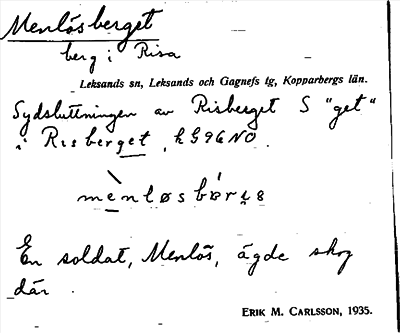 Menlösberget
berg i Risa
Leksands sn, Leksands och Gagnefs tg, Kopparbergs län.
Sydsluttningen av Risberget S "get"
i Risberget, k G96NO.
En soldat, Menlös, ägde skog
där.
ERIK M. CARLSSON, 1935.